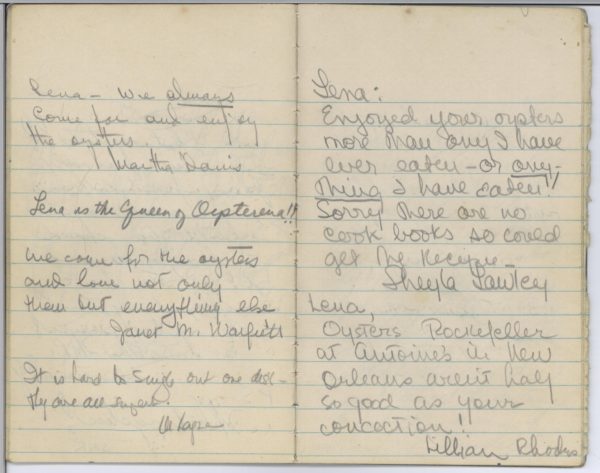 Lena – We always
come for and enjoy
the oysters
Martha Davis
Lena is the Queen of Oysterena!!
We come for the oysters
and love not only
them but everything else
Janet M.
It is hard to single out one dish –
they are all superb.
Lena:
Enjoyed your oysters
more than any I have
ever eaten – or any-
thing I have eaten!!
Sorry there are no
cook books so could
get the recipe –
Sheyla Lawley
Lena,
Oysters Rockefeller
at Antoine's in New
Orleans aren't half
so good as your
concoction!
Lillian Rhodes